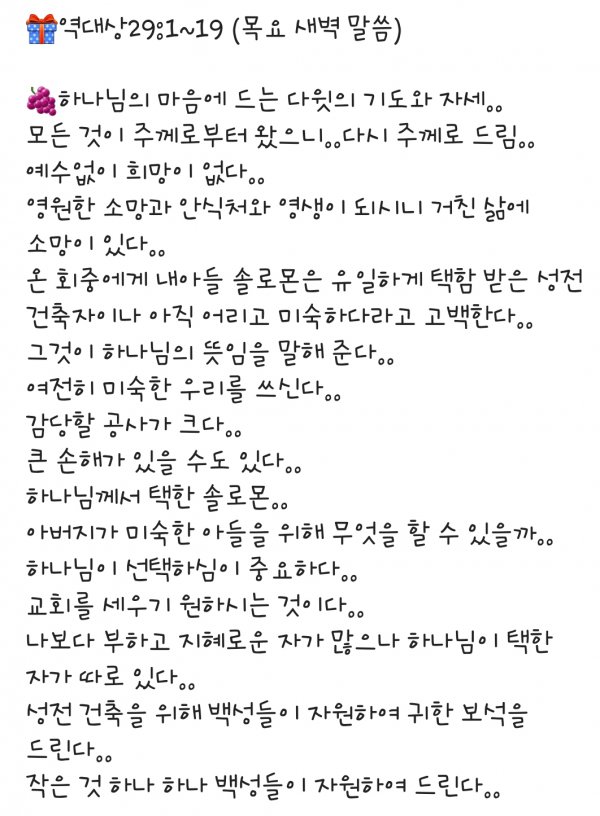 🎁역대상29:1~19 (목요 새벽 말씀)
🍇하나님의 마음에 드는 다윗의 기도와 자세..
모든 것이 주께로부터 왔으니..다시 주께로 드림..
예수없이 희망이 없다..
영원한 소망과 안식처와 영생이 되시니 거친 삶에
소망이 있다..
온 회중에게 내아들 솔로몬은 유일하게 택함 받은 성전
건축자이나 아직 어리고 미숙하다라고 고백한다..
그것이 하나님의 뜻임을 말해 준다..
여전히 미숙한 우리를 쓰신다..
감당할 공사가 크다..
큰 손해가 있을 수도 있다..
하나님께서 택한 솔로몬..
아버지가 미숙한 아들을 위해 무엇을 할 수 있을까..
하나님이 선택하심이 중요하다..
교회를 세우기 원하시는 것이다..
나보다 부하고 지혜로운 자가 많으나 하나님이 택한
자가 따로 있다..
성전 건축을 위해 백성들이 자원하여 귀한 보석을
드린다..
작은 것 하나 하나 백성들이 자원하여 드린다..